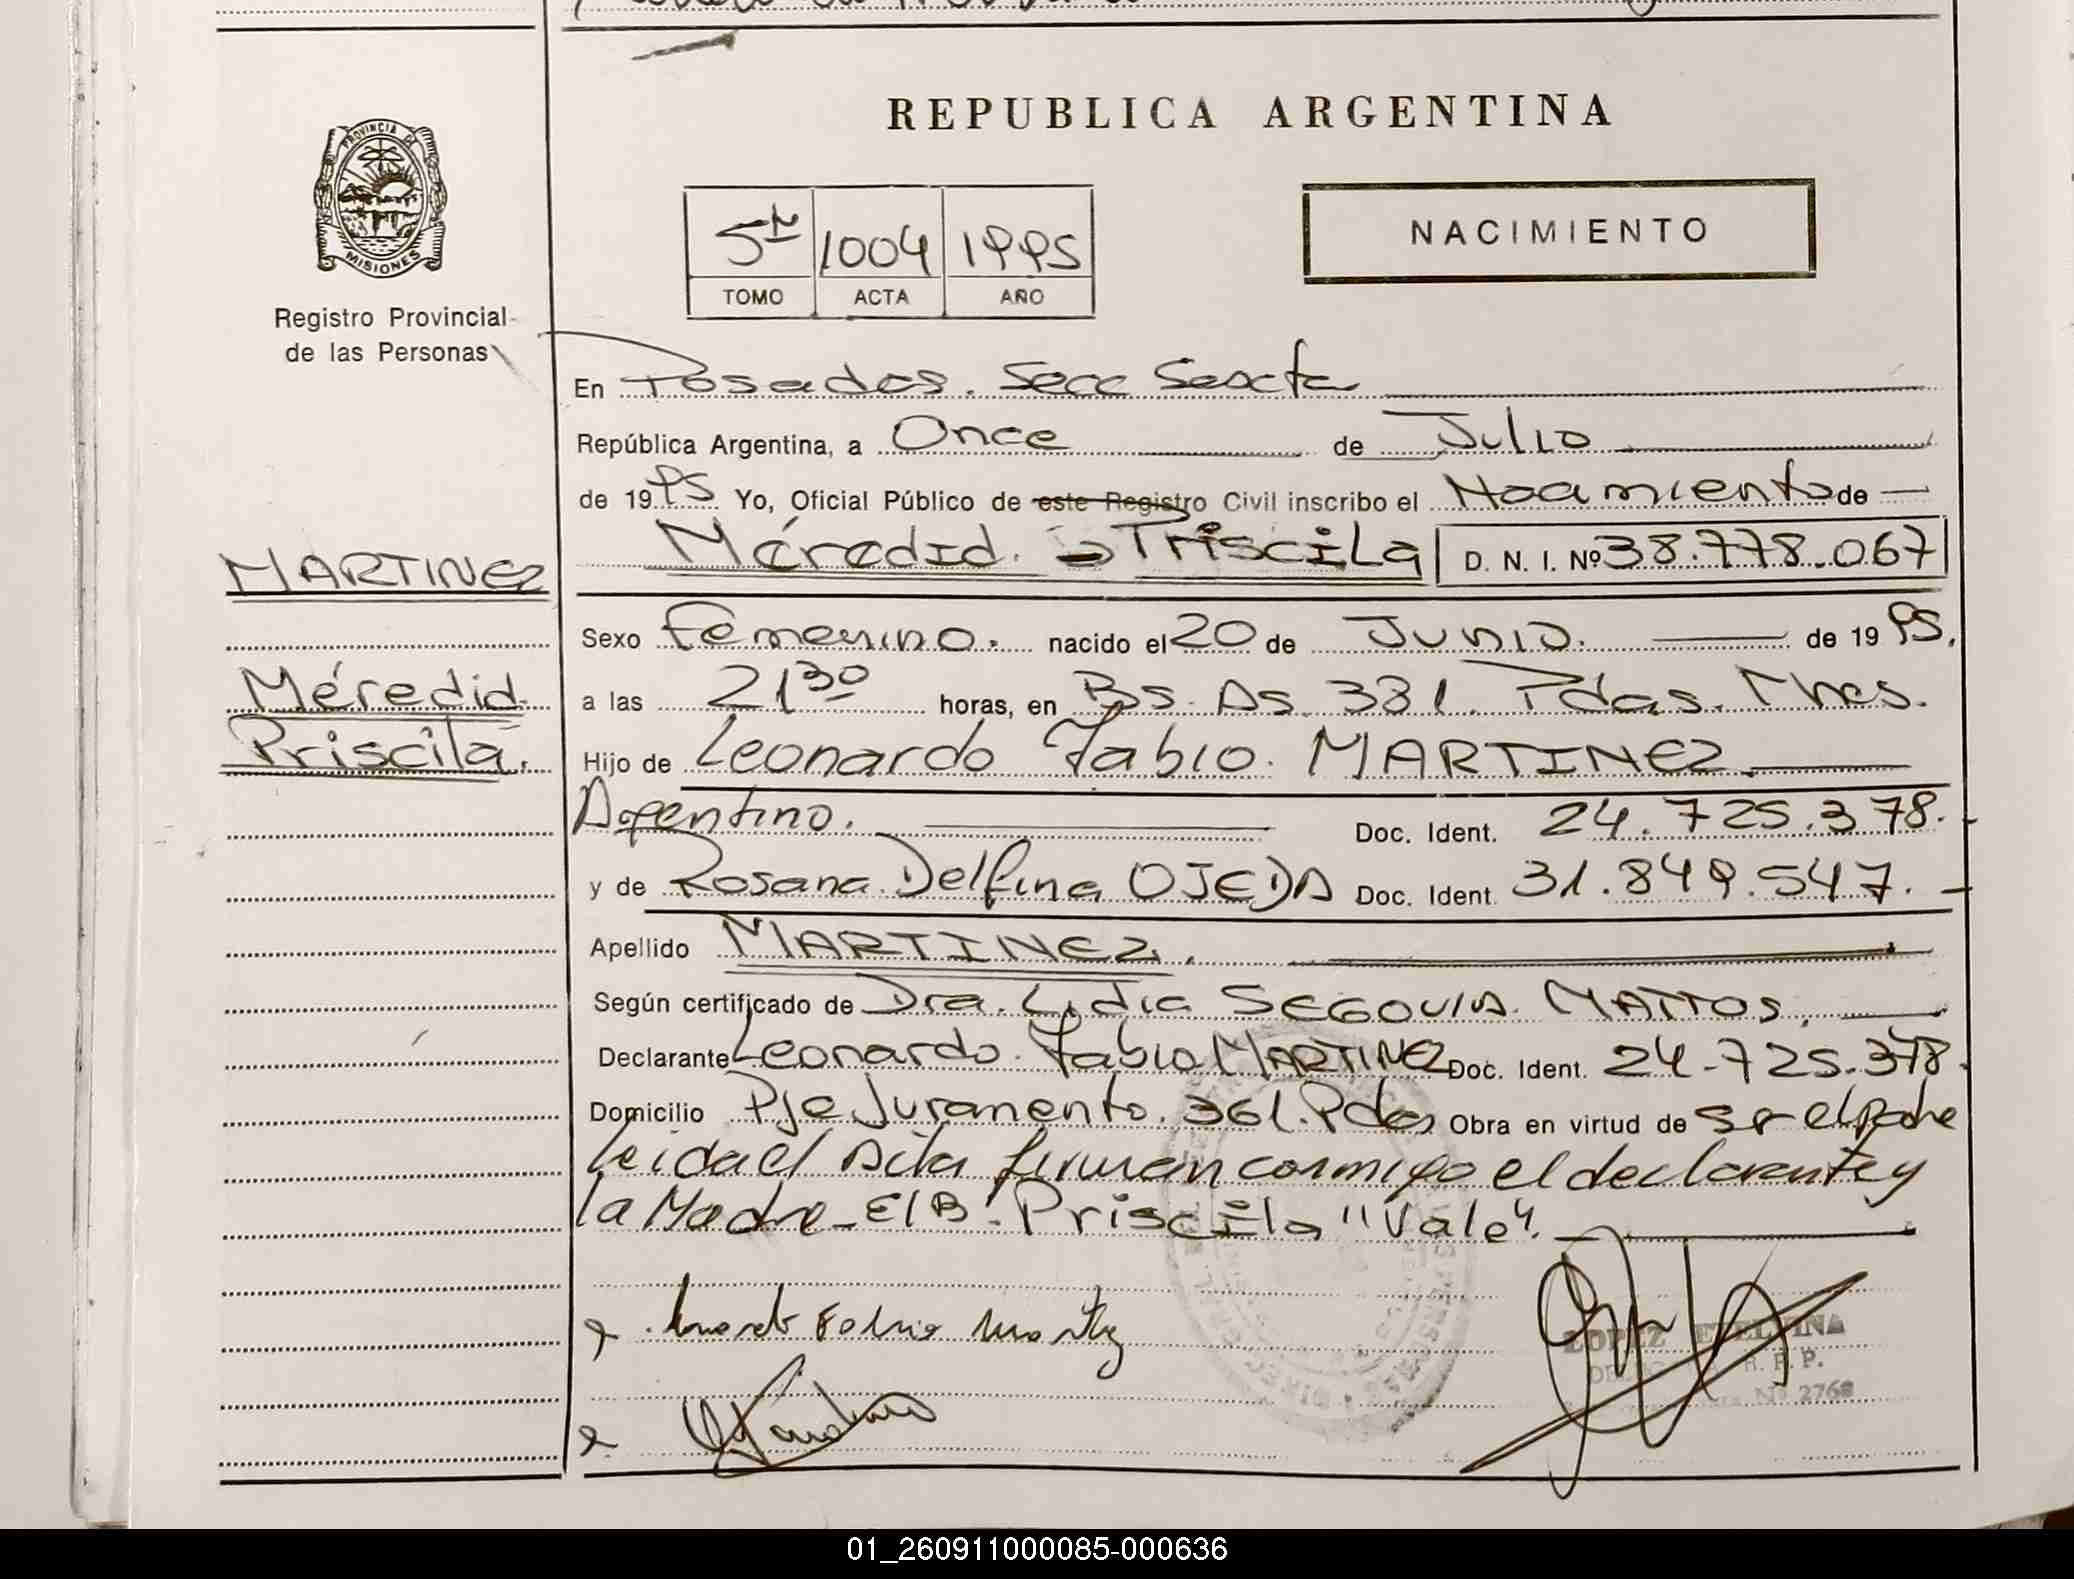 REPUBLICA ARGENTINA
PROVINCIA DE
MISIONES
Registro Provincial
de las Personas
5º 1004 1995
TOMO ACTA AÑO
NACIMIENTO
En Posadas. Secc Sexta
República Argentina, a Once de Julio
de 1995 Yo, Oficial Público de este Registro Civil inscribo el Nacimiento de
Méredid. Priscila D. N. I. Nº 38.778.067
MARTINEZ
Méredid.
Priscila.
Sexo Femenino. nacido el 20 de Junio. de 1995.
a las 21 30 horas, en Bs. As. 331. Pdas. Mnes.
Hijo de Leonardo Fabio. MARTINEZ.
Argentino. Doc. Ident. 24.725.378.
y de Rosana Delfina OJEDA Doc. Ident. 31.849.547.
Apellido MARTINEZ.
Según certificado de Dra. Lidia SEGOVIA MATTOS.
Declarante Leonardo. Fabio MARTINEZ Doc. Ident. 24.725.378.
Domicilio Pje Juramento. 361. Pdas Obra en virtud de ser el padre
leida el Acta firman conmigo el declarante y
la Madre - E/B. Priscila "Vale".
Leonardo Fabio Martinez
LOPEZ ETELVINA
R. P. P.
Nº 2768
01_260911000085-000636